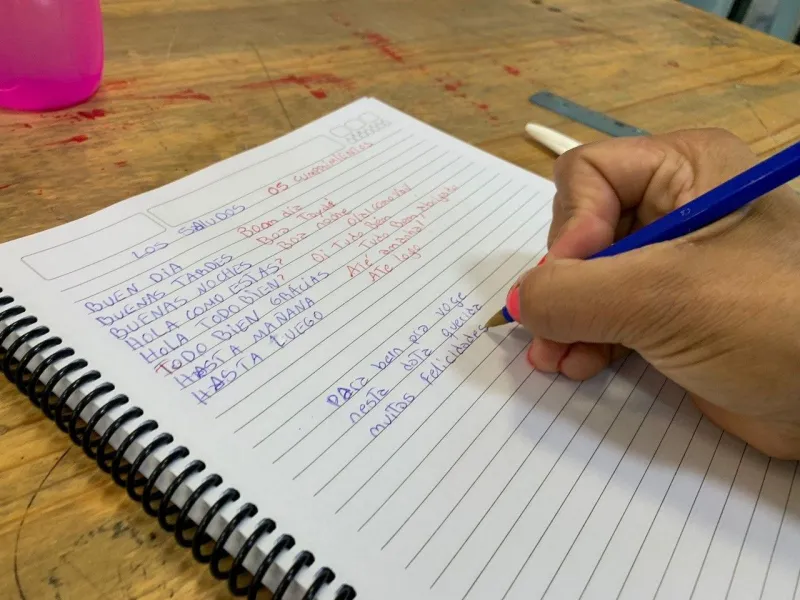 LOS SALUDOS OS CUMPRIMIENTOS
BUEN DIA Boom dia
BUENAS TARDES Boa Tarde
BUENAS NOCHES Boa noche
HOLA COMO ESTAS? como vai
HOLA TODO BIEN? Oi Tudo Bem
TODO BIEN GRACIAS Tudo Bem
HASTA MAÑANA Até
HASTA LUEGO Ate logo
PAra bem pra vose
nesta data querida
muitas felicidades